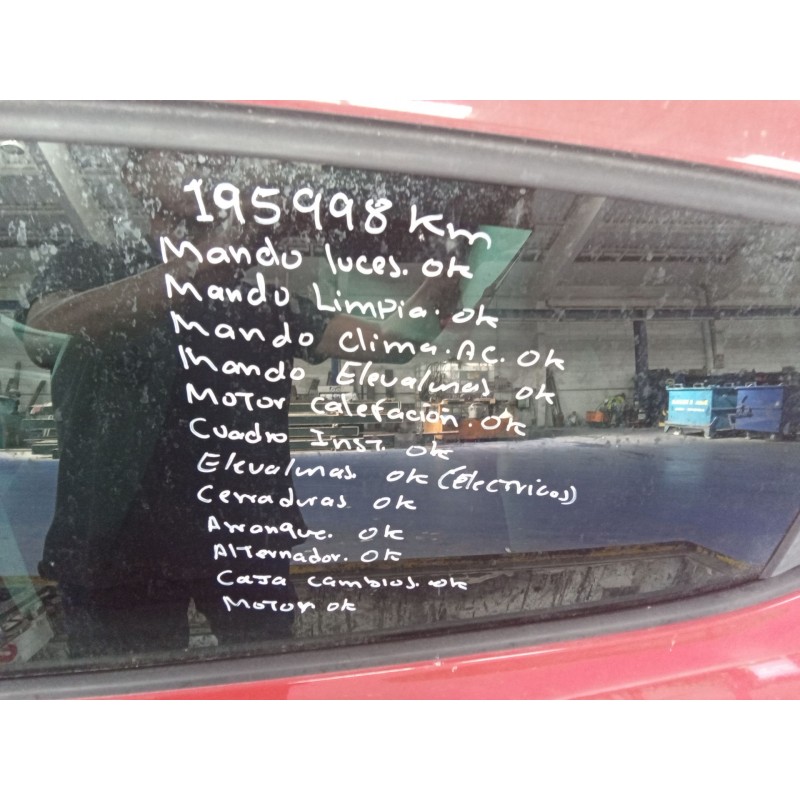 195998 Km
Mando luces. ok
Mando Limpia. ok
Mando clima. AC. ok
Mando Elevalunas ok
Motor calefacion. ok
Cuadro Inst. ok
Elevalunas. ok (Electricos)
Cerraduras ok
Arranque. ok
Alternador. ok
Caja cambios. ok
Motor ok